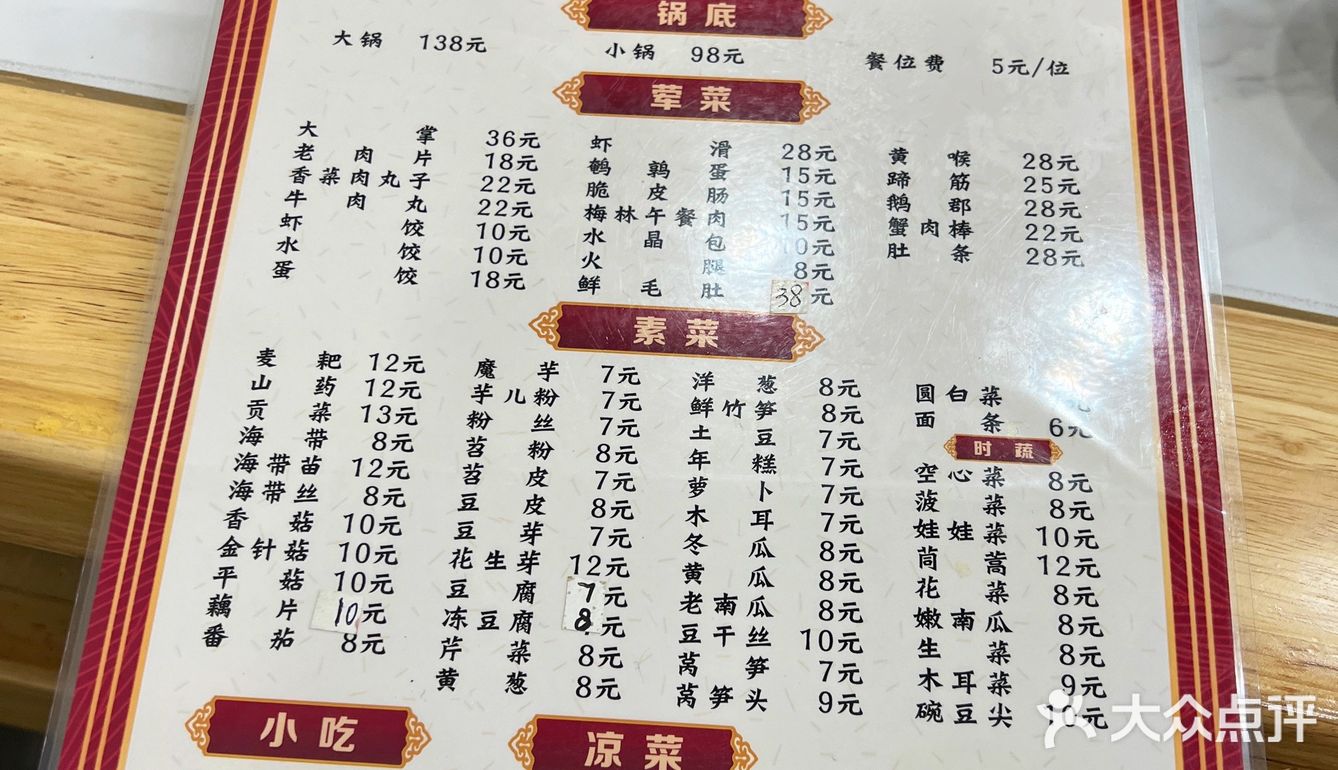 锅底
大锅 138元 小锅 98元 餐位费 5元/位
荤菜
大掌 36元
老肉片 18元
香菜肉丸子 22元
牛肉丸 22元
虾饺 10元
水饺 10元
蛋饺 18元
虾滑 28元
鹌鹑蛋 15元
脆皮肠 15元
梅林午餐肉 15元
水晶包 10元
火腿 8元
鲜毛肚 38元
黄喉 28元
蹄筋 25元
鹅郡 28元
蟹肉棒 22元
肚条 28元
素菜
麦粑 12元
山药 12元
贡菜 13元
海带 8元
海带苗 12元
海带丝 8元
香菇 10元
金针菇 10元
平菇 10元
藕片 10元
番茄 8元
魔芋 7元
芋儿粉 7元
粉丝 7元
苕粉 8元
苕皮 7元
豆皮 8元
豆芽 7元
花生芽 12元
豆腐 7元
冻豆腐 8元
芹菜 8元
黄葱 8元
洋葱 8元
鲜竹笋 8元
土豆 7元
年糕 7元
萝卜 7元
木耳 7元
冬瓜 8元
黄瓜 8元
老南瓜 8元
豆干丝 10元
莴笋 7元
莴笋头 9元
圆白菜 元
面条 6元
时蔬
空心菜 8元
菠菜 8元
娃娃菜 10元
茼蒿 12元
花菜 8元
嫩南瓜 8元
生菜 8元
木耳菜 9元
碗豆尖 元
小吃
凉菜
大众点评